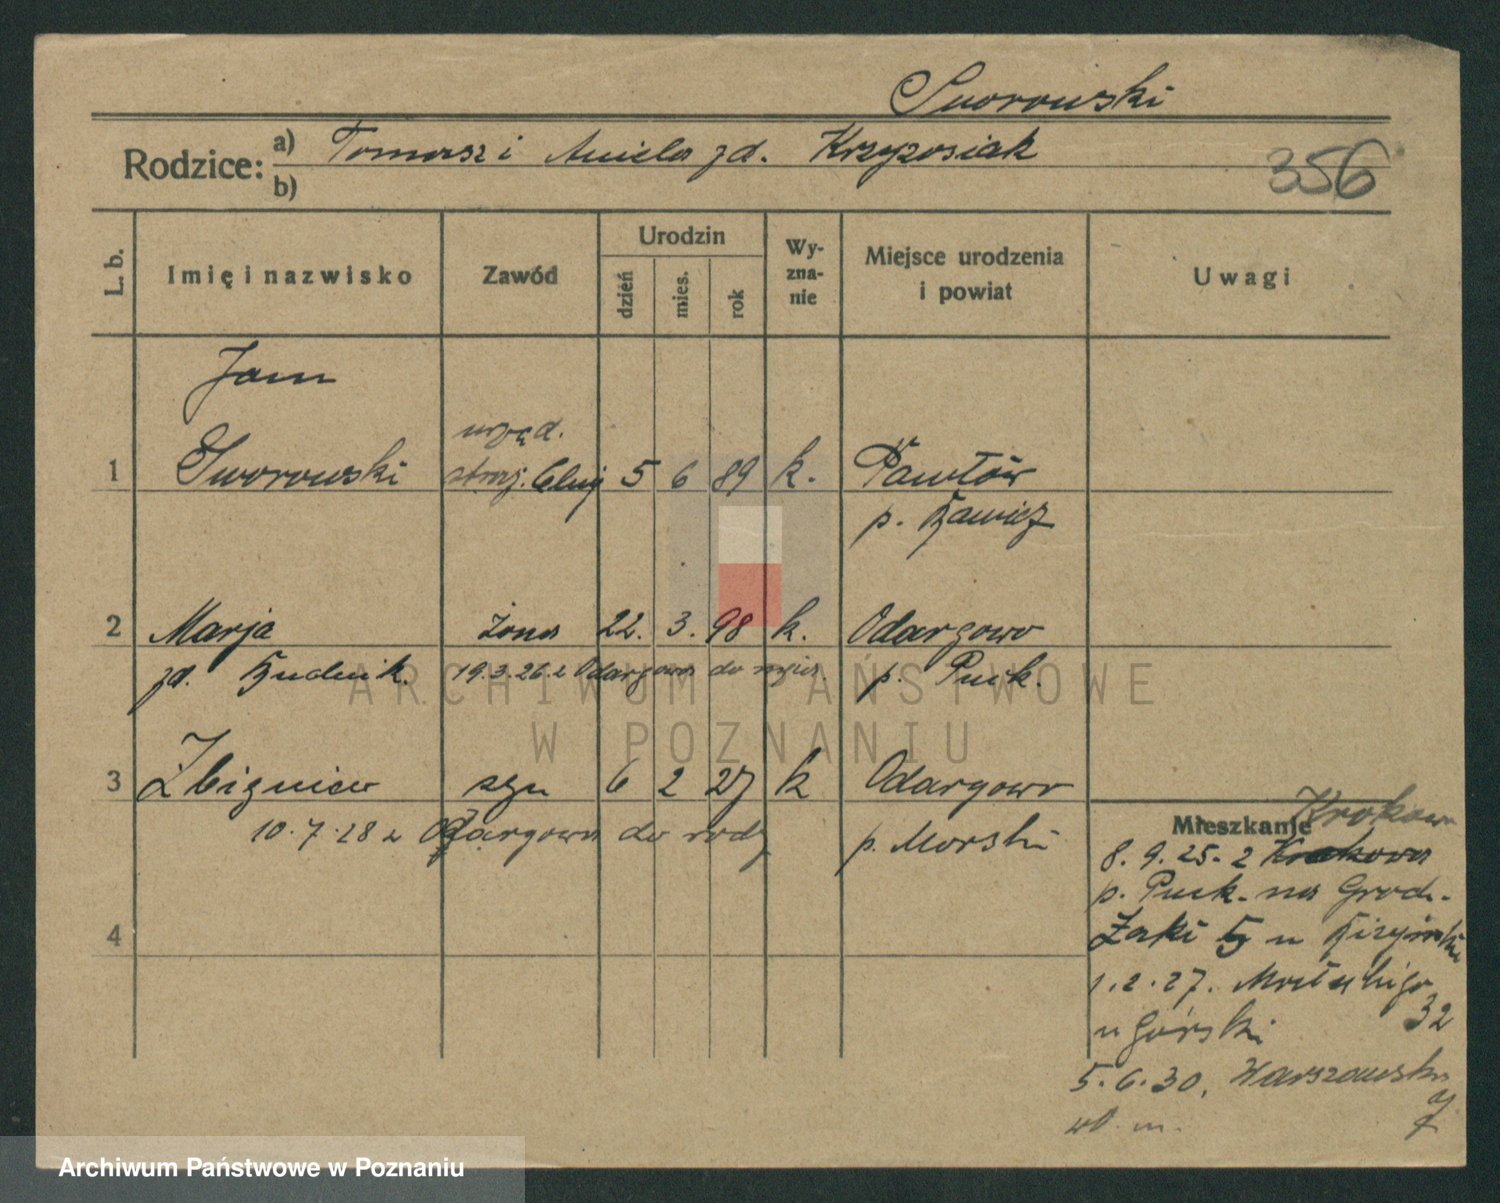 Sworowski
Rodzice: a) Tomasz i Aniela zd. Krzyżosiak
b)
356
L. b. Imię i nazwisko Zawód Urodzin dzień mies. rok Wy-zna-nie Miejsce urodzenia i powiat Uwagi
Jan
urzęd.
1 Sworowski straż. Celnej 5 6 89 k. Pawłów
p. Rawicz
2 Marja żona 22. 3. 98 k. Odargowo
zd. Rudnik. 19.3.26. z Odargowa do męża. p. Puck.
3 Zbigniew syn 6 2 27 k Odargowo
10.7.28 z Odargowa do rodz p. Morski
Mieszkanie Krokowa
8.9.25. z Krakowa
p. Puck. na Grodz.
Żaki 5 u
4
1.2.27.
32
u Górski
5.6.30. Warszawska
wł. m.
ARCHIWUM PAŃSTWOWE
W POZNANIU
Archiwum Państwowe w Poznaniu